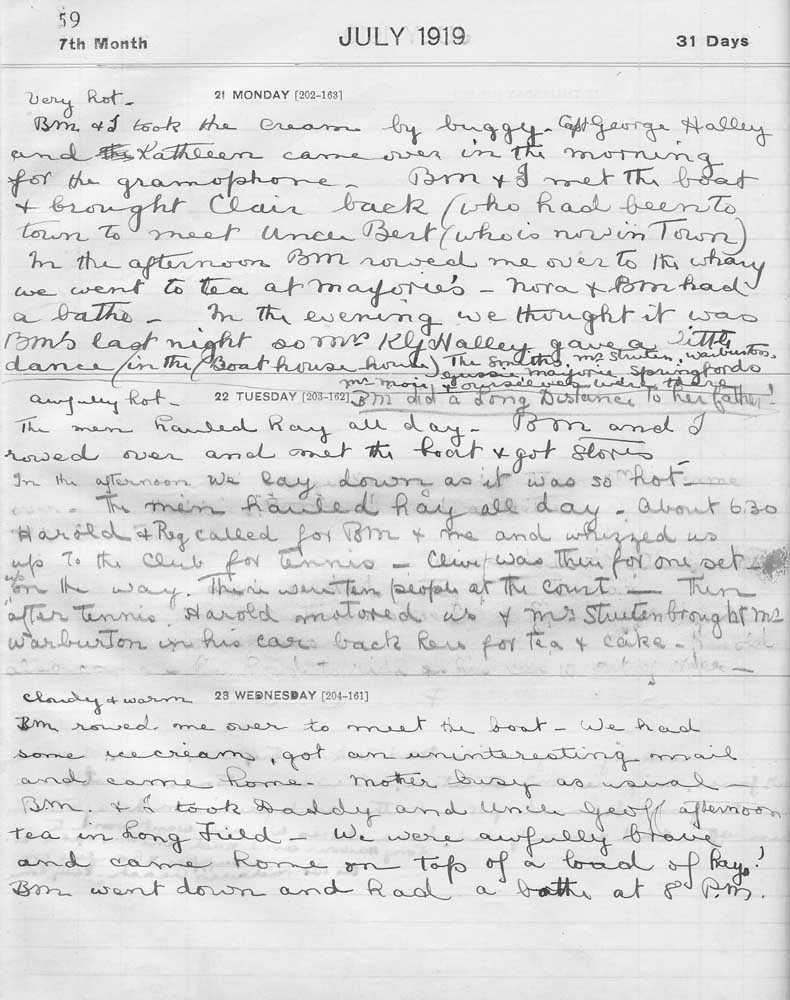 59
7th Month JULY 1919 31 Days
Very hot - 21 MONDAY [202-163]
BM & I took the cream by buggy - Capt George Halley
and Kathleen came over in the morning
for the gramophone - BM & I met the boat
& brought Clair back (who had been to
town to meet Uncle Bert (who is now in Town)
In the afternoon BM rowed me over to the wharf
we went to tea at Marjorie's - Nora & BM had
a bathe - In the evening we thought it was
BM's last night so Mrs Halley gave a little
dance (in the (Boat house house) The Smiths, Mr Stuten, Warburtons,
Gussie Marjorie Springfords
Mr Moir & ourselves were there
awfully hot - 22 TUESDAY [203-162] BM did a Long Distance to her father!
The men hauled hay all day - BM and I
rowed over and met the boat & got stores
In the afternoon we lay down as it was so hot -
The men hauled hay all day - About 6.30
Harold & Reg called for BM & me and whizzed us
up to the club for tennis - Clive was there for one set -
up
on the way. There were ten people at the court - Then
after tennis Harold motored us & Mr Stuten brought Mr
Warburton in his car back here for tea & cake -
cloudy & warm 23 WEDNESDAY [204-161]
BM rowed me over to meet the boat - We had
some icecream, got an uninteresting mail
and came home - Mother busy as usual -
BM. & I took Daddy and Uncle Geoff afternoon
tea in Long Field - We were awfully brave
and came home on top of a load of hay!
BM went down and had a bathe at 8 P.M.